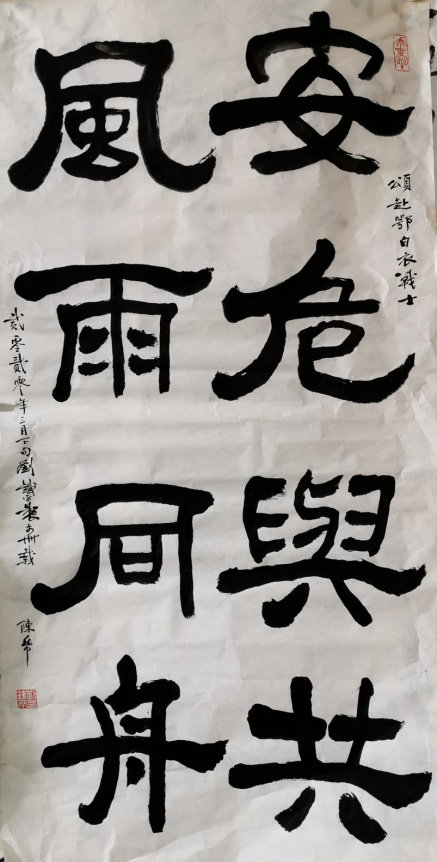 安危與共
風雨同舟
頌赴鄂白衣戰士
貳零貳零年三月下旬
陳